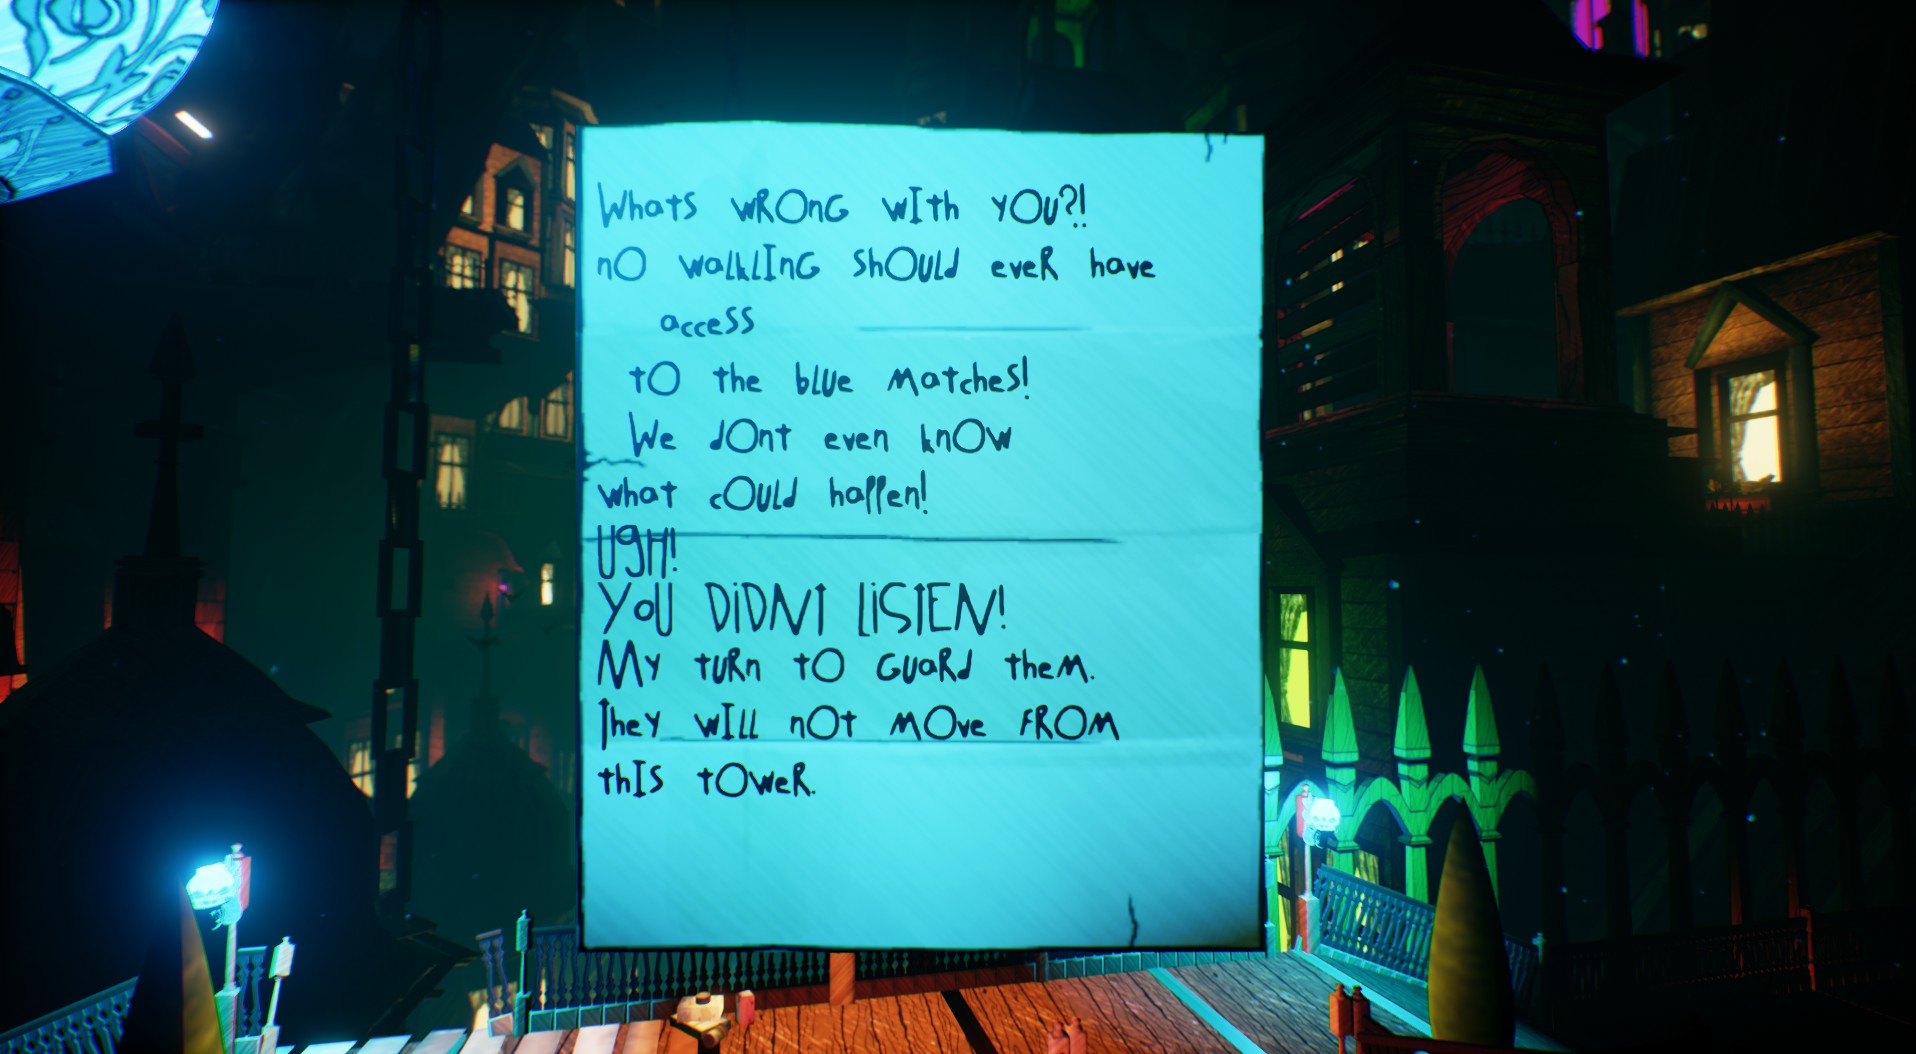 Whats wROnG wIth yOu?!
nO walkLInG shOULd eveR have
access
tO the bLUe Matches!
We dOnt even knOw
what cOULd happen!
UGH!
YoU DiDNT LiSTEN!
My tURn tO GUaRd theM.
They wILL nOt MOve FROM
thIS tOweR.